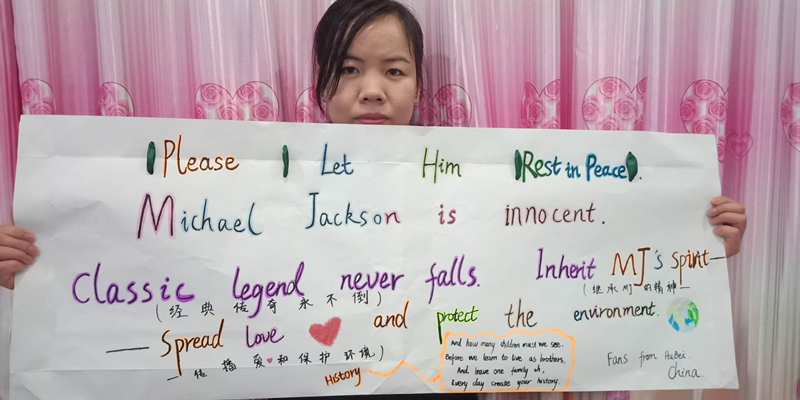 Please Let Him Rest in Peace.
Michael Jackson is innocent.
Classic legend never falls. Inherit MJ's spirit—
(经典传奇永不倒) (继承MJ的精神—
— Spread love and protect the environment.
— 传播爱和保护环境)
History
And how many children must we see,
Before we learn to live as brothers,
And leave one family oh,
Every day create your history.
Fans from HuBei.
China.